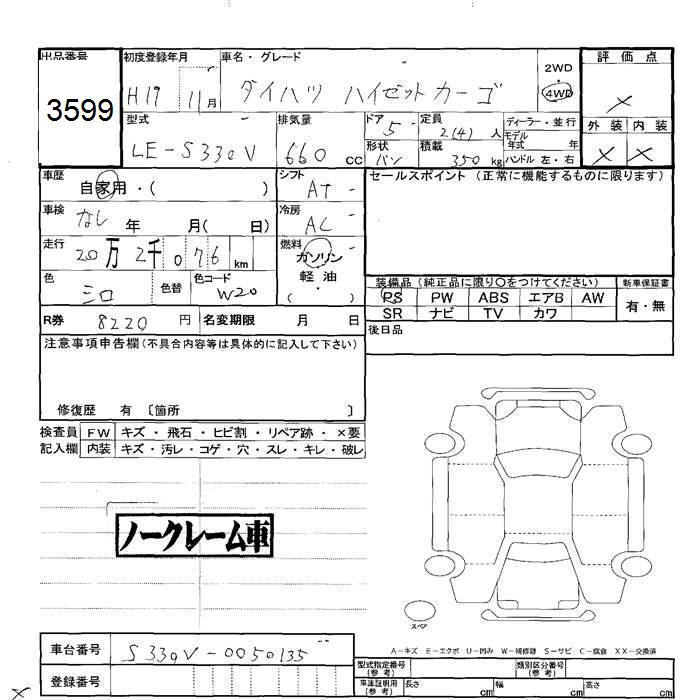 出品番号 初度登録年月 車名・グレード 2WD 評価点
3599 H19 11月 ダイハツ ハイゼットカーゴ 4WD ×
型式 排気量 ドア 定員 ディーラー・並行 外装 内装
LE-S330V 660 cc 5 2(4) 人 モデル年式 年 × ×
形状 バン 積載 350 kg ハンドル 左・右
車歴 自家用・( ) シフト AT セールスポイント (正常に機能するものに限ります)
車検 なし 年 月( 日) 冷房 AC
走行 20万2千076 km 燃料 ガソリン・軽油・( )
色 シロ 色替 色コード W20
装備品 (純正品に限り○をつけてください) 新車保証書
PS PW ABS エアB AW 有・無
SR ナビ TV カワ
R券 8220 円 名変期限 月 日 後日品
注意事項申告欄(不具合内容等は具体的に記入して下さい)
修復歴 有 〔箇所 〕
検査員 FW キズ・飛石・ヒビ割・リペア跡・×要
記入欄 内装 キズ・汚レ・コゲ・穴・スレ・キレ・破レ
ノークレーム車
スペア
A-キズ E-エクボ U-凹み W-補修跡 S-サビ C-腐食 XX-交換済
車台番号 S330V-0050135
型式指定番号(参考) 類別区分番号(参考)
登録番号
車庫証明用(参考) 長さ cm 幅 cm 高さ cm
×